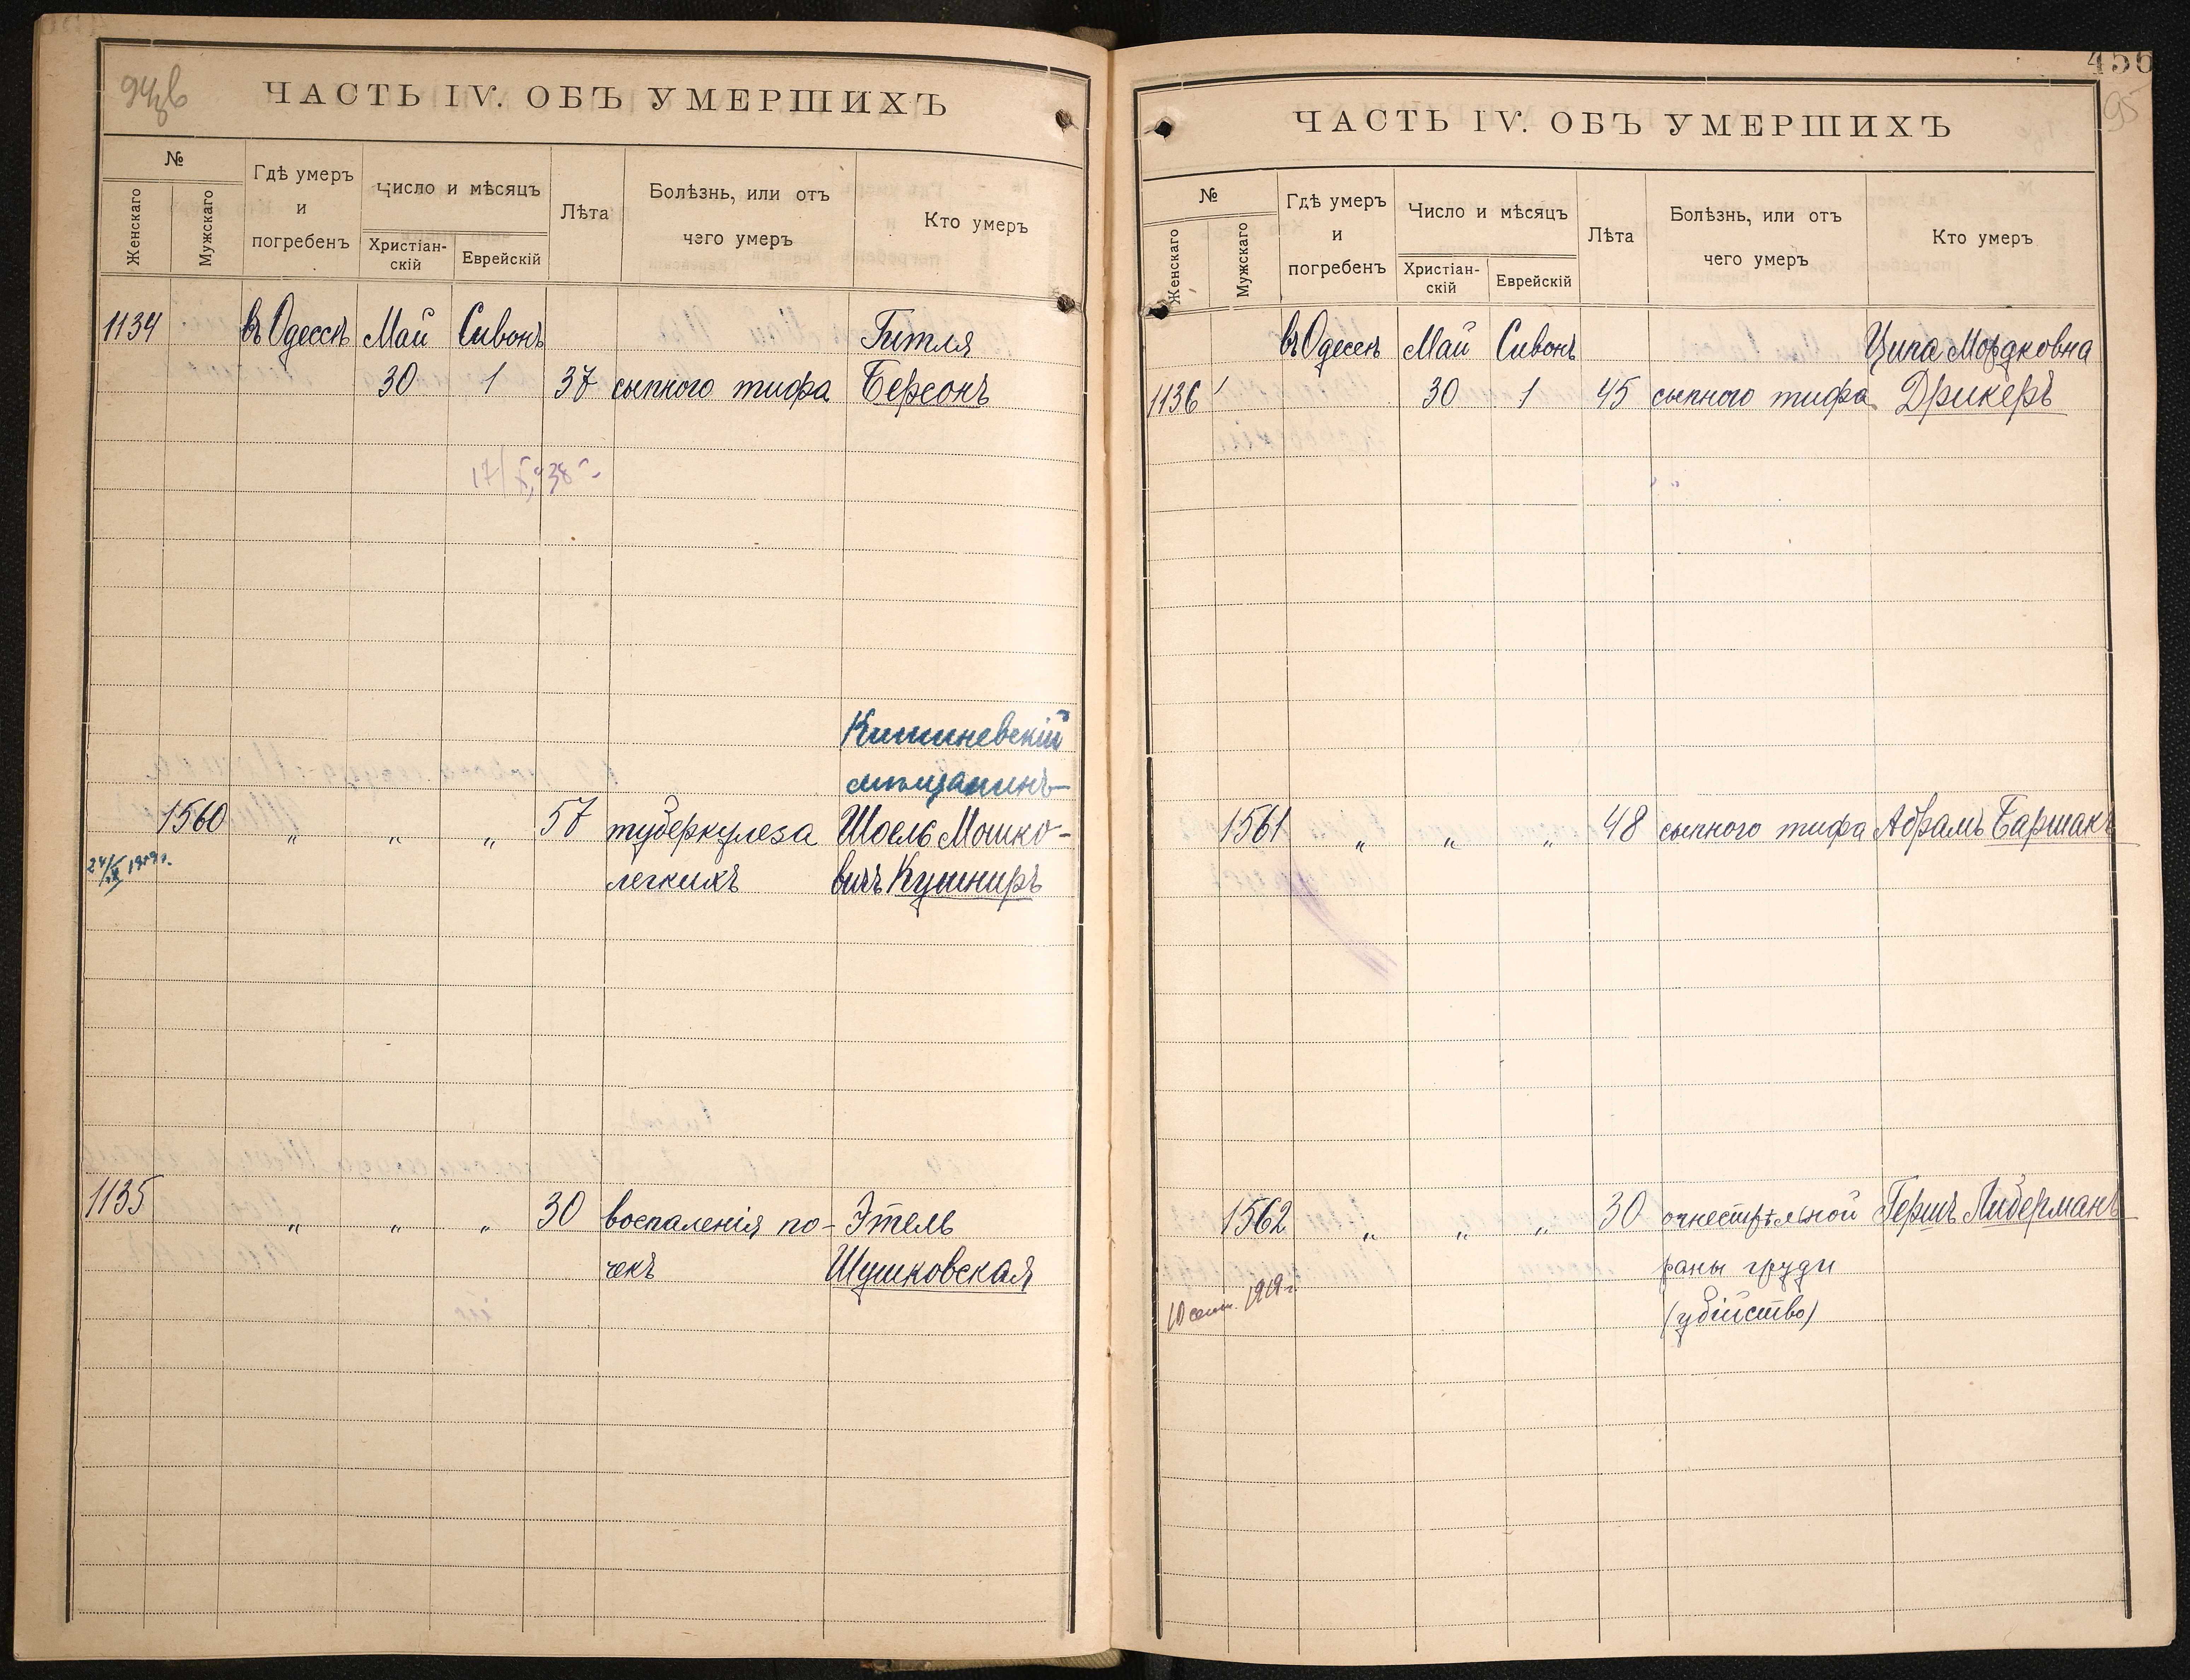 ЧАСТЬ IV. ОБЪ УМЕРШИХЪ
№
Женскаго
Мужскаго
Гдѣ умеръ
и
погребенъ
Число и мѣсяцъ
Христіан-
скій
Еврейскій
Лѣта
Болѣзнь, или отъ
чего умеръ
Кто умеръ
1134 въ Одессѣ Май Сивонъ Гитля
30 1 37 сыпного тифа Берсонъ
Кишиневскій
мѣщанинъ
1560 " " " 57 туберкулеза Шоель Мошко-
легкихъ вичъ Кушниръ
1135 " " " 30 воспаленія по- Этель
чекъ Шушковская
456
95
ЧАСТЬ IV. ОБЪ УМЕРШИХЪ
№
Женскаго
Мужскаго
Гдѣ умеръ
и
погребенъ
Число и мѣсяцъ
Христіан-
скій
Еврейскій
Лѣта
Болѣзнь, или отъ
чего умеръ
Кто умеръ
въ Одессѣ Май Сивонъ Ципа Мордковна
1136 30 1 45 сыпного тифа Дрикеръ
1561 " " " 48 сыпного тифа Абрамъ Баршакъ
1562 " " " 30 огнестрѣльной Гершъ Либерманъ
раны груди
10 сент. 1919 г.
(убійство)